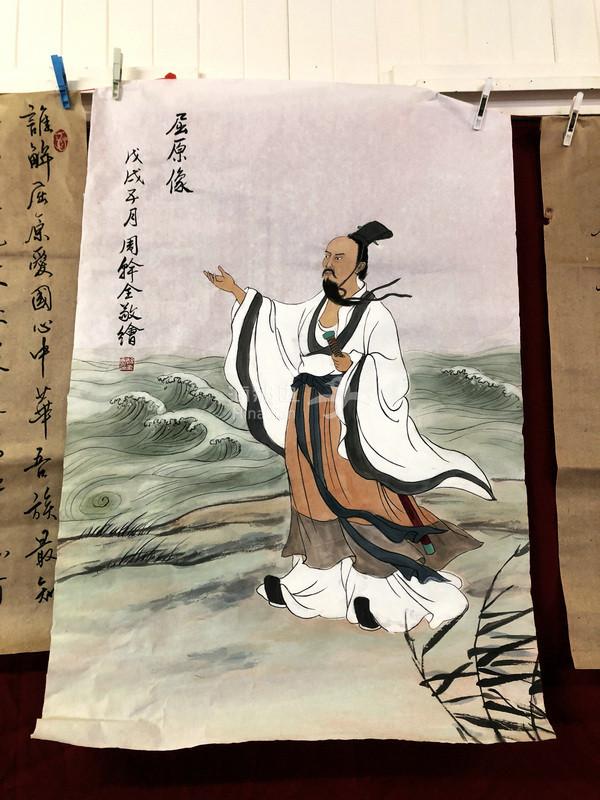 屈原像
戊戌子月周幹全敬繪
誰解屈原愛國心中華吾族最知